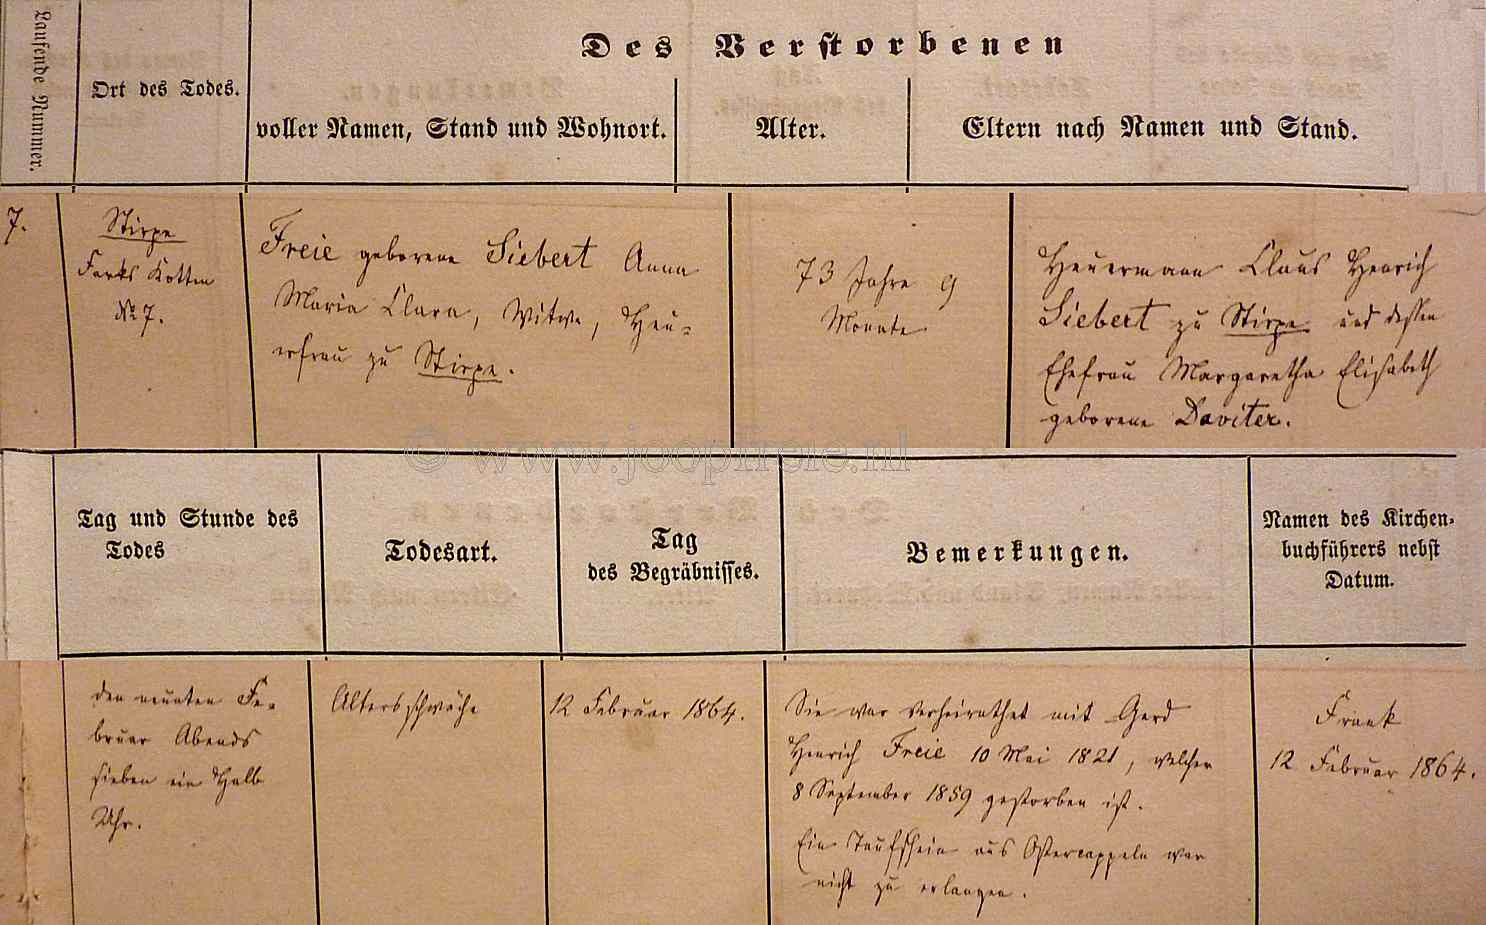 Laufende Nummer.
Ort des Todes.
Des Verstorbenen
voller Namen, Stand und Wohnort.
Alter.
Eltern nach Namen und Stand.
7.
Stirpe
Farks Kotten
№ 7.
Freie geborene Siebert Anna
Maria Clara, Witwe, Heu-
erfrau zu Stirpe.
73 Jahre 9
Monate
Heuermann Claus Henrich
Siebert zu Stirpe und dessen
Ehefrau Margaretha Elisabeth
geborene Daviter.
© www.joopfreie.nl
Tag und Stunde des
Todes
Todesart.
Tag
des Begräbnisses.
Bemerkungen.
Namen des Kirchen-
buchführers nebst
Datum.
den neunten Fe-
bruar Abends
sieben ein Halb
Uhr.
Altersschwäche
12 Februar 1864.
Sie war verheirathet mit Gerd
Henrich Freie 10 Mai 1821, welcher
8 September 1859 gestorben ist.
Ein Taufschein aus Ostercappeln war
nicht zu erlangen.
Frank
12 Februar 1864.